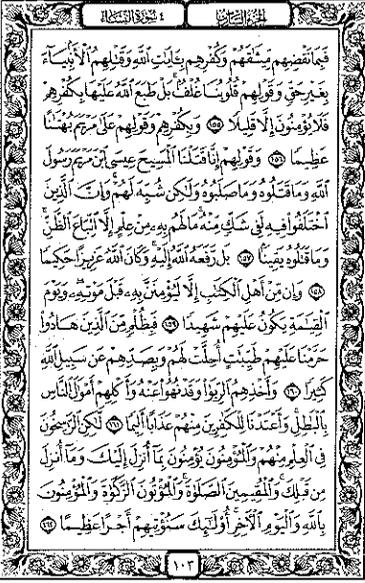 الجزء السادس
٤ سورة النساء
فَبِمَا نَقْضِهِم مِّيثَٰقَهُمْ وَكُفْرِهِم بِـَٔايَٰتِ ٱللَّهِ وَقَتْلِهِمُ ٱلْأَنۢبِيَآءَ
بِغَيْرِ حَقٍّ وَقَوْلِهِمْ قُلُوبُنَا غُلْفٌۢ بَلْ طَبَعَ ٱللَّهُ عَلَيْهَا بِكُفْرِهِمْ
فَلَا يُؤْمِنُونَ إِلَّا قَلِيلًا ١٥٥ وَبِكُفْرِهِمْ وَقَوْلِهِمْ عَلَىٰ مَرْيَمَ بُهْتَٰنًا
عَظِيمًا ١٥٦ وَقَوْلِهِمْ إِنَّا قَتَلْنَا ٱلْمَسِيحَ عِيسَى ٱبْنَ مَرْيَمَ رَسُولَ
ٱللَّهِ وَمَا قَتَلُوهُ وَمَا صَلَبُوهُ وَلَٰكِن شُبِّهَ لَهُمْ ۚ وَإِنَّ ٱلَّذِينَ
ٱخْتَلَفُوا۟ فِيهِ لَفِى شَكٍّ مِّنْهُ ۚ مَا لَهُم بِهِۦ مِنْ عِلْمٍ إِلَّا ٱتِّبَاعَ ٱلظَّنِّ ۚ
وَمَا قَتَلُوهُ يَقِينًۢا ١٥٧ بَل رَّفَعَهُ ٱللَّهُ إِلَيْهِ ۚ وَكَانَ ٱللَّهُ عَزِيزًا حَكِيمًا
١٥٨ وَإِن مِّنْ أَهْلِ ٱلْكِتَٰبِ إِلَّا لَيُؤْمِنَنَّ بِهِۦ قَبْلَ مَوْتِهِۦ ۖ وَيَوْمَ
ٱلْقِيَٰمَةِ يَكُونُ عَلَيْهِمْ شَهِيدًا ١٥٩ فَبِظُلْمٍ مِّنَ ٱلَّذِينَ هَادُوا۟
حَرَّمْنَا عَلَيْهِمْ طَيِّبَٰتٍ أُحِلَّتْ لَهُمْ وَبِصَدِّهِمْ عَن سَبِيلِ ٱللَّهِ
كَثِيرًا ١٦٠ وَأَخْذِهِمُ ٱلرِّبَوٰا۟ وَقَدْ نُهُوا۟ عَنْهُ وَأَكْلِهِمْ أَمْوَٰلَ ٱلنَّاسِ
بِٱلْبَٰطِلِ ۚ وَأَعْتَدْنَا لِلْكَٰفِرِينَ مِنْهُمْ عَذَابًا أَلِيمًا ١٦١ لَّٰكِنِ ٱلرَّٰسِخُونَ
فِى ٱلْعِلْمِ مِنْهُمْ وَٱلْمُؤْمِنُونَ يُؤْمِنُونَ بِمَآ أُنزِلَ إِلَيْكَ وَمَآ أُنزِلَ
مِن قَبْلِكَ ۚ وَٱلْمُقِيمِينَ ٱلصَّلَوٰةَ ۚ وَٱلْمُؤْتُونَ ٱلزَّكَوٰةَ وَٱلْمُؤْمِنُونَ
بِٱللَّهِ وَٱلْيَوْمِ ٱلْـَٔاخِرِ أُو۟لَٰٓئِكَ سَنُؤْتِيهِمْ أَجْرًا عَظِيمًا ١٦٢
١٠٣